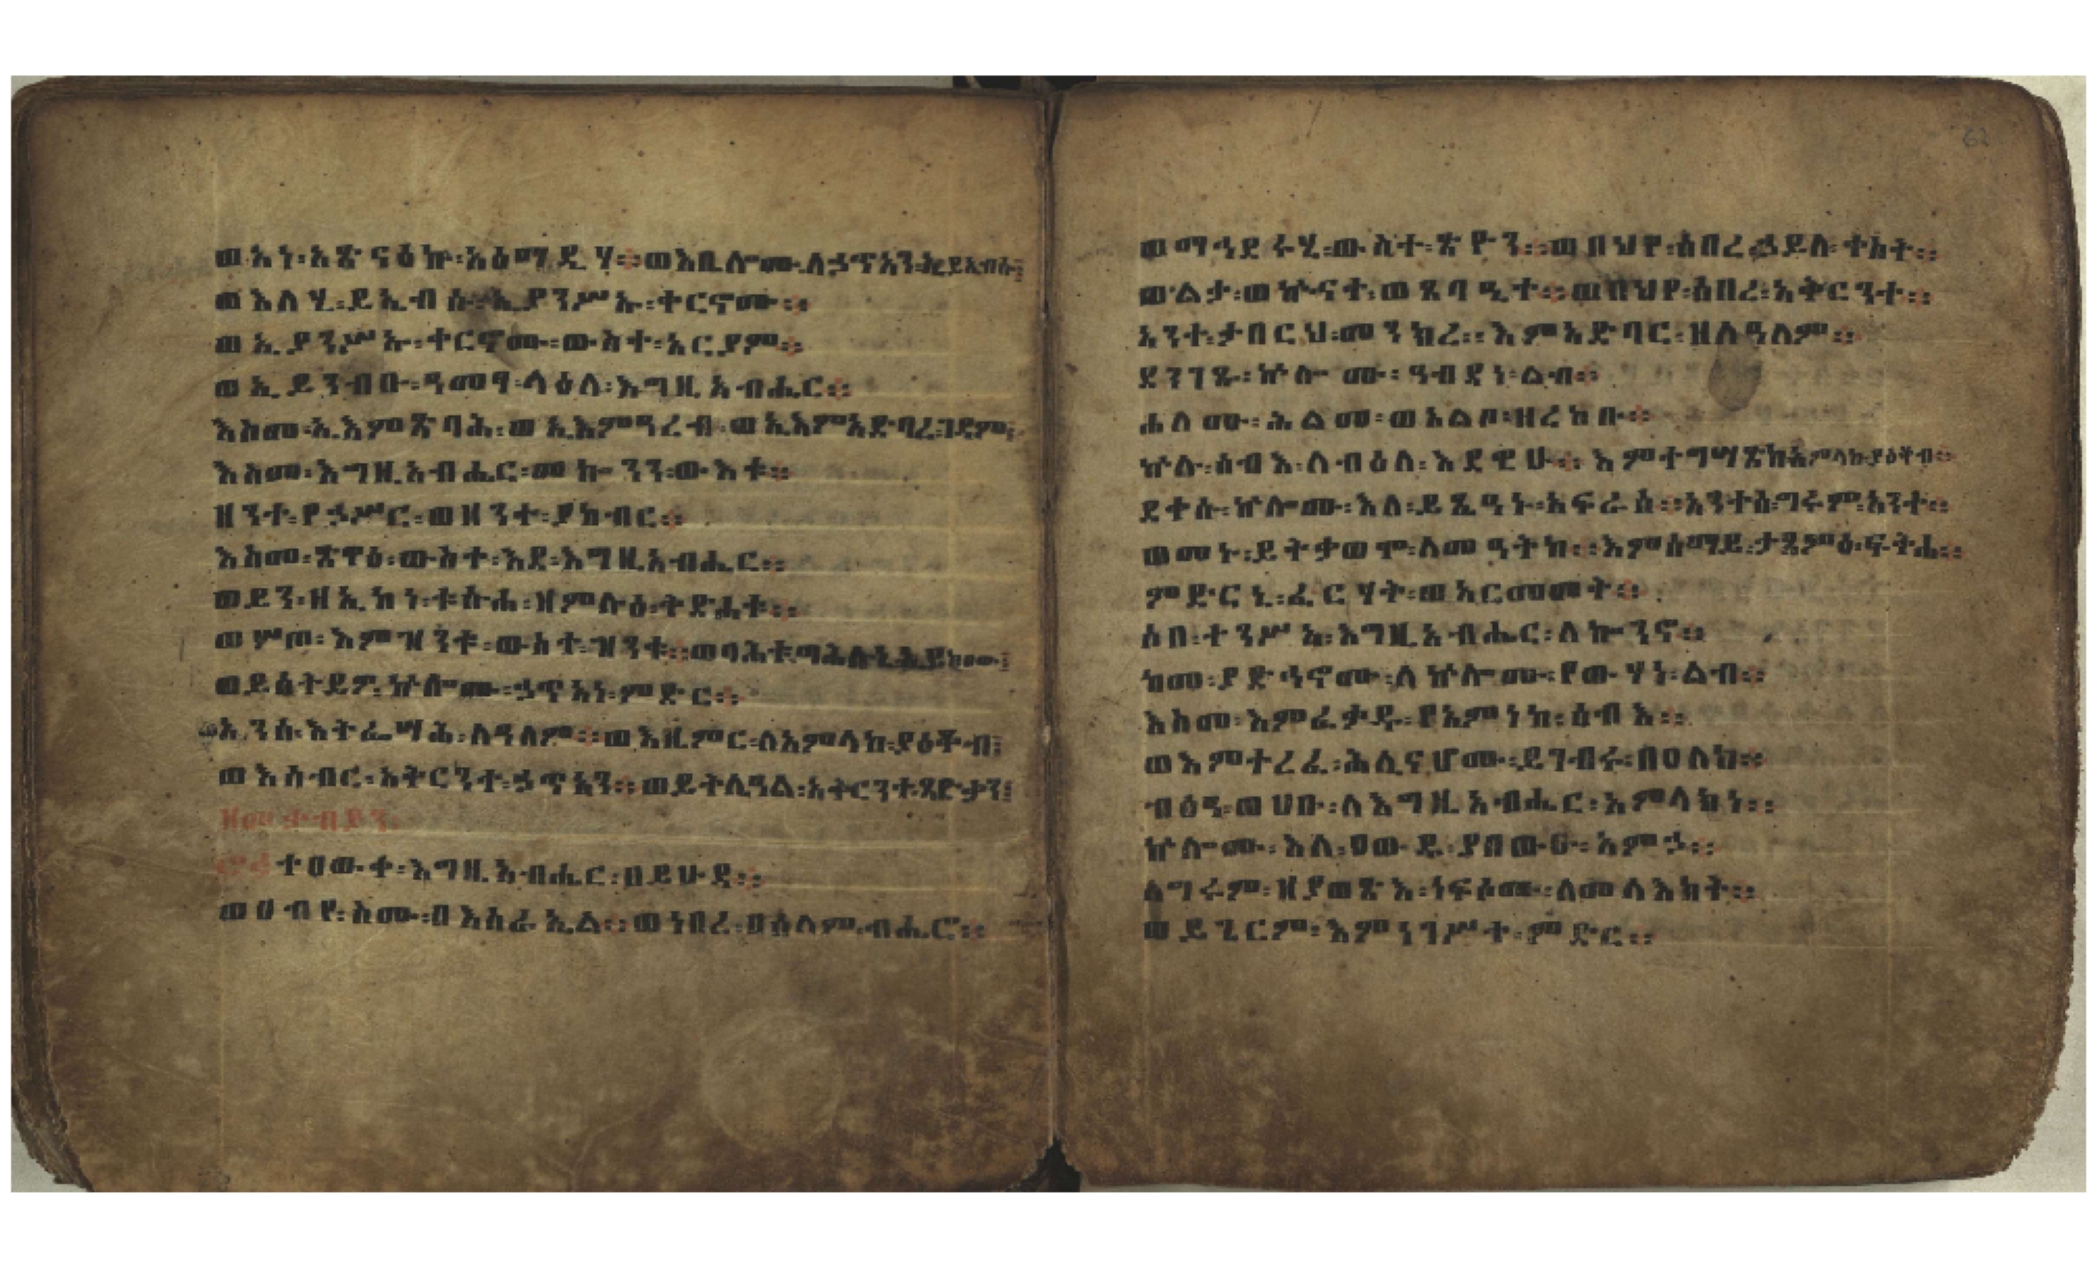 ወአነ፡አጽናዕኩ፡አዕማዲሃ። ወእቤሎሙ፡ለኃጥአን፡ኢይአብሱ፤
ወእለሂ፡ይኤብሱ፡ኢያንሥኡ፡ቀርኖሙ።
ወኢያንሥኡ፡ቀርኖሙ፡ውስተ፡አርያም።
ወኢይንብቡ፡ዓመፃ፡ላዕለ፡እግዚአብሔር።
እስመ፡ኢእምጽባሕ፡ወኢእምዓረብ፡ወኢእምአድባረ፡ገዳም፤
እስመ፡እግዚአብሔር፡መኰንን፡ውእቱ።
ዘንተ፡የኃሥር፡ወዘንተ፡ያከብር።
እስመ፡ጽዋዕ፡ውስተ፡እደ፡እግዚአብሔር።
ወይን፡ዘኢኮነ፡ቱሱሐ፡ዝምሉዕ፡ትድሕቱ።
ወሦጠ፡እምዝንቱ፡ውስተ፡ዝንቱ።
ወይሰትይዎ፡ኵሎሙ፡ኃጥአነ፡ምድር።
አንሰ፡እትፌሣሕ፡ለዓለም። ወእዜምር፡ለአምላከ፡ያዕቆብ፤
ወእሰብር፡አቅርንተ፡ኃጥአን። ወይትሌዓል፡አቅርንተ፡ጻድቃን፤
ተዐውቀ፡እግዚአብሔር፡በይሁዳ።
ወዐብየ፡ስሙ፡በእስራኤል። ወነበረ፡በሰላም፡ብሔሮ።
ወማኅደሩሂ፡ውስተ፡ጽዮን። ወበህየ፡ሰበረ፡ኃይለ፡ቀስት።
ወልታ፡ወኵናተ፡ወጸባዒተ። ወበህየ፡ሰበረ፡አቅርንተ።
አንተ፡ታበርህ፡መንክረ። እምአድባር፡ዘለዓለም።
ደንገፁ፡ኵሎሙ፡ዓብዳነ፡ልብ።
ሐለሙ፡ሕልመ፡ወአልቦ፡ዘረከቡ።
ኵሉ፡ሰብእ፡ለብዕለ፡እደዊሁ። እምተግሣጽከ፡አምላከ፡ያዕቆብ።
ደቀሱ፡ኵሎሙ፡እለ፡ይጼዓኑ፡አፍራሰ። አንተሰ፡ግሩም፡አንተ።
ወመኑ፡ይትቃወሞ፡ለመዓትከ። እምሰማይ፡ታጸምዕ፡ፍትሐ።
ምድርኒ፡ፈርሃት፡ወአርመመት።
ሰበ፡ተንሥአ፡እግዚአብሔር፡ለኰንኖ።
ከመ፡ያድኅኖሙ፡ለኵሎሙ፡የውሃነ፡ልብ።
እስመ፡እምፈቃዱ፡የአምነከ፡ሰብእ።
ወእምተረፈ፡ሕሊናሆሙ፡ይገብሩ፡በዐለከ።
ብፅዓ፡ወሀቡ፡ለእግዚአብሔር፡አምላክነ።
ኵሎሙ፡እለ፡ዐውዱ፡ያበውኡ፡አምኃ።
ለግሩም፡ዘያወጽእ፡ነፍሶሙ፡ለመላእክት።
ወይጌርም፡እምነገሥተ፡ምድር።